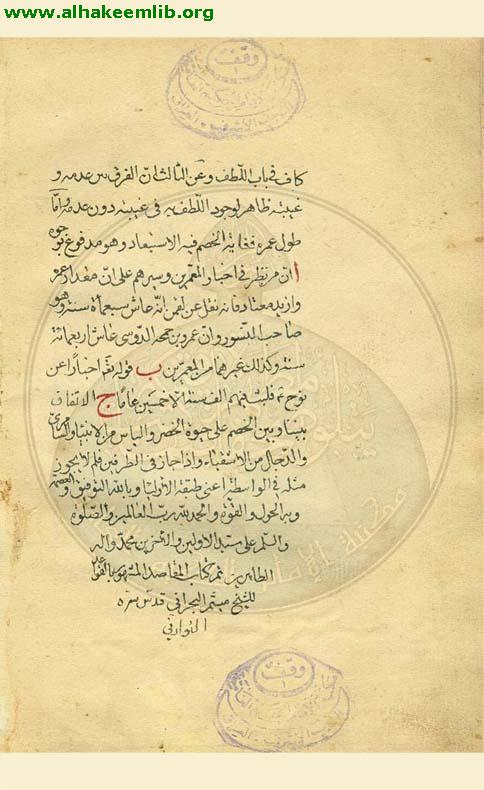 www.alhakeemlib.org
وقف
كاف في باب اللطف وعن الثالث ان الفرق بين عدمه و
غيبته ظاهر لوجود اللطف به في غيبته دون عدمه واما
طول عمره فغاية الخصم فيه الاستبعاد وهو مدفوع بوجوه
ا ان من نظر في اخبار المعمرين وسيرهم علم ان مقدار عمره
وازيد معتاد فانه نقل عن لقمن انه عاش سبعمأة سنة وهو
صاحب النسور وان عمرو بن حمحمة الدوسي عاش اربعمائة
سنة وكذلك غيرهما من المعمرين ب قوله تعم اخبارا عن
نوح ع فلبث فيهم الف سنة الا خمسين عاما ج الاتفاق
بيننا وبين الخصم على حيوة الخضر والياس من الانبياء والسامري
والدجال من الاشقياء واذا جاز في الطرفين فلم لا يجوز
مثله في الواسطة اعني طبقة الاولياء وبالله التوفيق والعصمة
وبه الحول والقوة والحمد لله رب العالمين والصلوة
والسلم على سيد الاولين والاخرين محمد واله
الطاهرين تم كتاب المقاصد المشهور بالقواعد
للشيخ ميثم البحراني قدس سره
وقف